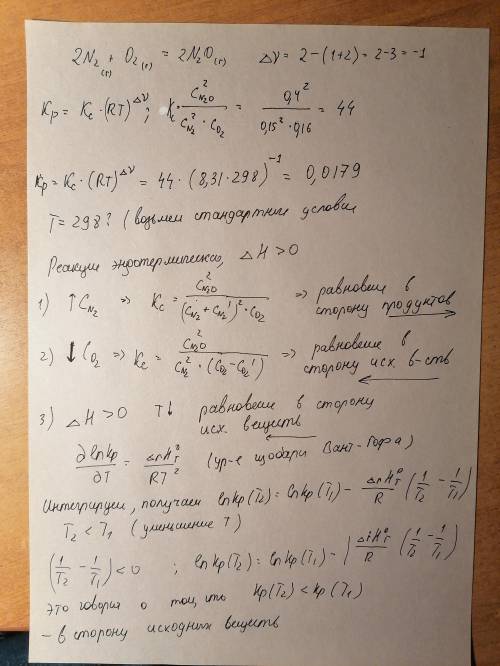 2N₂(г) + O₂(г) = 2N₂O(г)   Δν = 2-(1+2) = 2-3 = -1
Kp = Kc·(RT)^Δν; Kc = C²N₂O / (C²N₂ · CO₂) = 0,4² / (0,15² · 0,16) = 44
Kp = Kc·(RT)^Δν = 44·(8,31·298)^-1 = 0,0179
T = 298? (возьмем стандартные условия
Реакция эндотермическая, ΔH > 0
1) ↑CN₂ => Kc = C²N₂O / ((CN₂ + CN₂')² · CO₂) => равновесие в сторону продуктов →
2) ↓CO₂ => Kc = C²N₂O / (C²N₂ · (CO₂ - CO₂')) => равновесие в сторону исх. в-ств ←
3) ΔH > 0 T↓ равновесие в сторону исх. веществ ←
∂lnKp/∂T = ΔrH°T / RT² (ур-е изобары Вант-Гоффа)
Интегрируем, получаем lnKp(T₂) = lnKp(T₁) - ΔrH°T/R (1/T₂ - 1/T₁)
T₂ < T₁ (уменьшение T)
(1/T₂ - 1/T₁) < 0 ; lnKp(T₂) = lnKp(T₁) - |ΔrH°T/R (1/T₂ - 1/T₁)
это говорит о том, что Kp(T₂) < Kp(T₁)
- в сторону исходных веществ